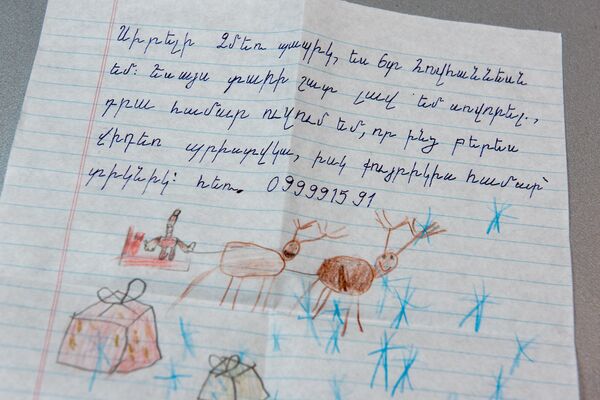 Սիրելի Ձմեռ պապիկ, ես 6տ Հովհաննեսն
եմ։ Ես այս տարի շատ լավ եմ սովորել,
դրա համար ուզում եմ, որ ինձ բերես
վիդեո պրիստվկա, իսկ քույրիկիս համար՝
տիկնիկ։ հեռ. 099991591